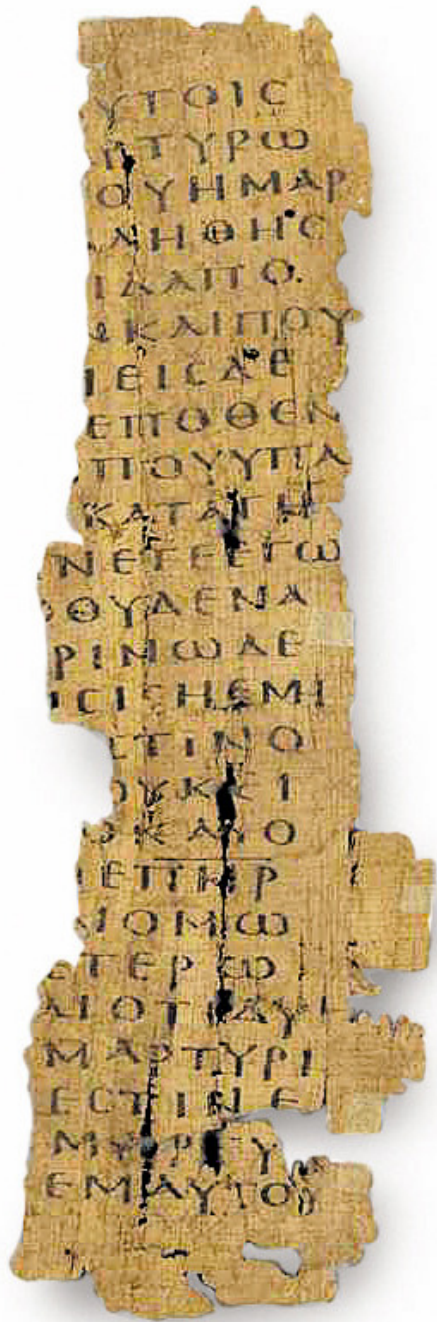 ΥΤΟΙC
ΡΤΥΡΩ
ΟΥΗΜΑΡ
ΛΗΘΗC
ΙΔΑΠΟ
ΚΑΙΠΟΥ
ΙΕΙCΔΕ
ΕΠΟΘΕΝ
ΠΟΥΥΠΑ
ΚΑΤΑΤΗ
ΝΕΤΕΕΓΩ
ΟΥΔΕΝΑ
ΡΙΝΩΔΕ
ΙCΙCΗΕΜΗ
CΤΙΝΟ
ΟΥΚΕΙ
ΩΚΑΙΟ
ΕΠΗΡ
ΝΟΜΩ
ΕΤΕΡΩ
ΑΙΟΤΙΔΥ
ΜΑΡΤΥΡΙ
ΕCΤΙΝΕ
ΜΑΡΤΥ
ΕΜΑΥΤΟΥ